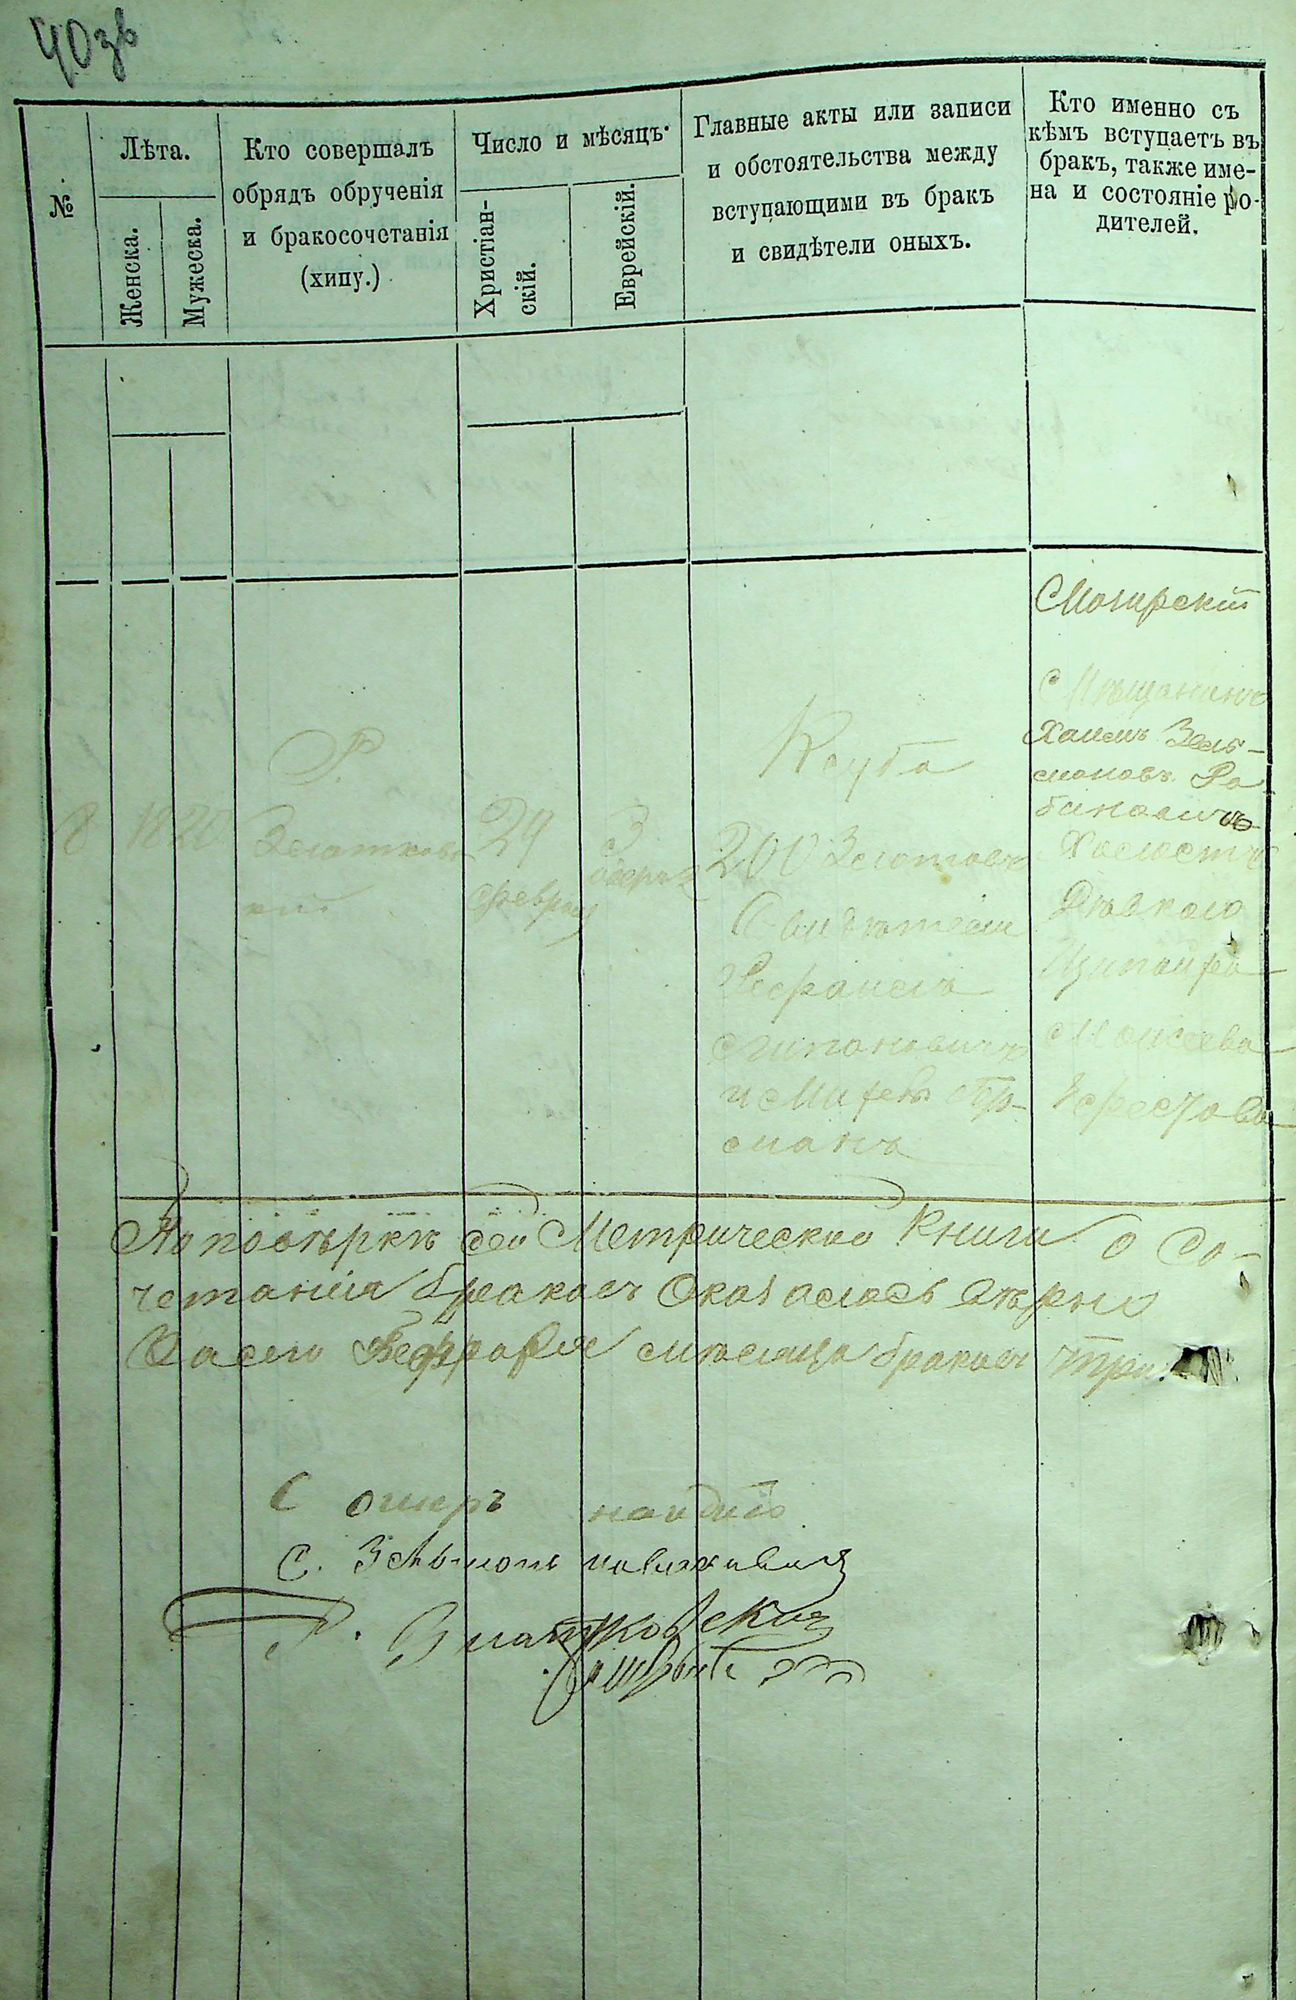 40зв
№
Лѣта.
Женска.
Мужеска.
Кто совершалъ
обрядъ обрученія
и бракосочетанія
(хипу.)
Число и мѣсяцъ.
Христіан-
скій.
Еврейскій.
Главные акты или записи
и обстоятельства между
вступающими въ бракъ
и свидѣтели оныхъ.
Кто именно съ
кѣмъ вступаетъ въ
бракъ, также име-
на и состояніе ро-
дителей.
8
18 20
Р.
Златковс
кій
29
февраля
3
Ктуба
200 Злотовъ
Свидѣтели
и
Мозирскій
Мѣщанинъ
Хаимъ Зель-
мановъ Ра-
биновичъ
Холостъ
Дѣвкою
Моисеева
По повѣркѣ сей Метрической Книги о Со-
четаніи бракомъ Оказалось вѣрно
Февраля мѣсяца бракомъ три.
С Ошеръ найдичъ
С. Зельманъ
Р. Златковскій